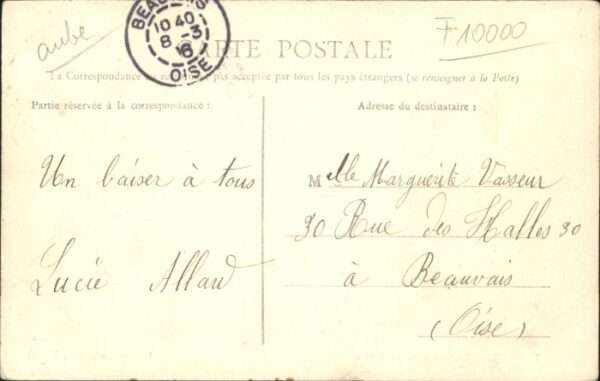 aube
BEAUVAIS
10 40
8 -3
6
OISE
F10000
CARTE POSTALE
La Correspondance au pas acceptée par tous les pays étrangers (se renseigner à la Poste)
Partie réservée à la correspondance :
Adresse du destinataire :
Un baiser à tous
Lucie Allard
Mlle Marguerite Vasseur
30 Rue des Halles 30
à Beauvais
(Oise)